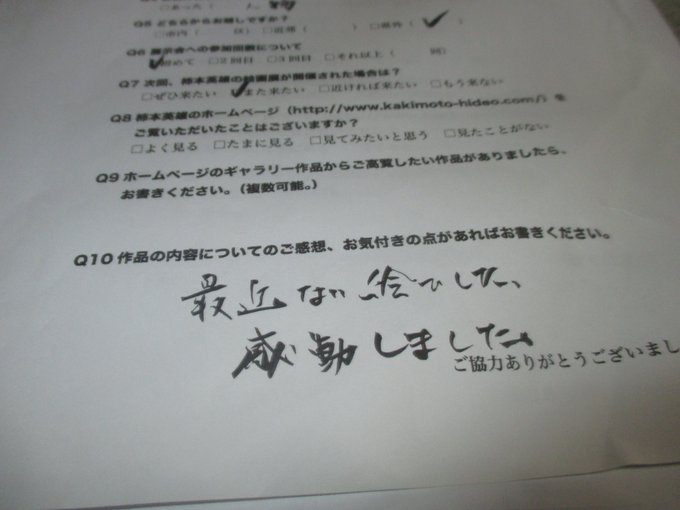 Q5 どちらからお越しですか?
□市内( 区) □近郊( ) □県外( )
Q6 展示会への参加回数について
□初めて □2回目 □3回目 □それ以上( 回)
Q7 次回、柿本英雄の絵画展が開催された場合は?
□ぜひ来たい □また来たい □近ければ来たい □もう来ない
Q8 柿本英雄のホームページ(http://www.kakimoto-hideo.com/)を
ご覧いただいたことはございますか?
□よく見る □たまに見る □見てみたいと思う □見たことがない
Q9 ホームページのギャラリー作品からご高覧したい作品がありましたら、
お書きください。(複数可能。)
Q10 作品の内容についてのご感想、お気付きの点があればお書きください。
最近ない絵でした、
感動しました。
ご協力ありがとうございまし